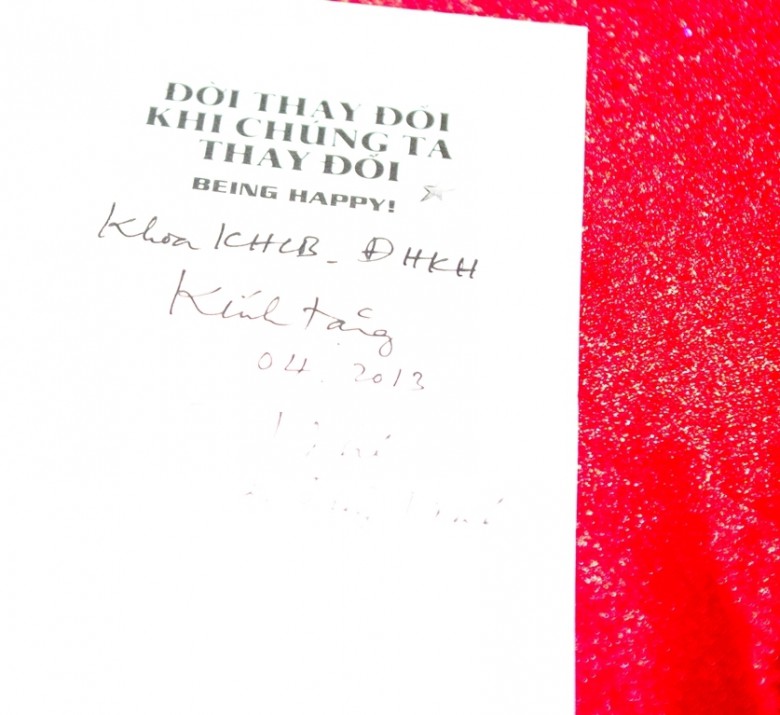 ĐỜI THAY ĐỔI
KHI CHÚNG TA
THAY ĐỔI
BEING HAPPY!
Khoa KHCB - ĐHKH
Kính tặng
04.2013